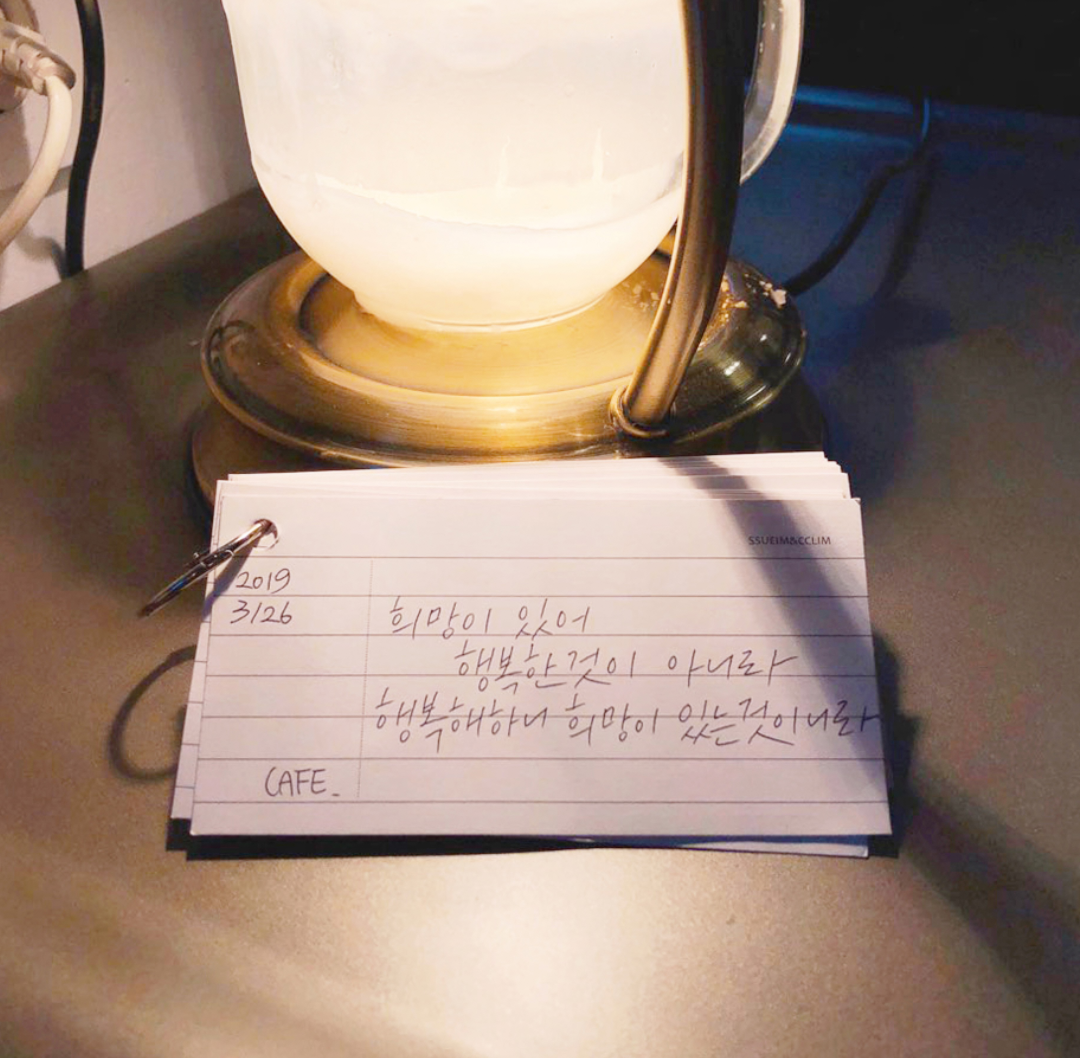 SSUEIM&CCLIM
2019
3/26
희망이 있어
행복한것이 아니라
행복해하니 희망이 있는것이니라
CAFE_